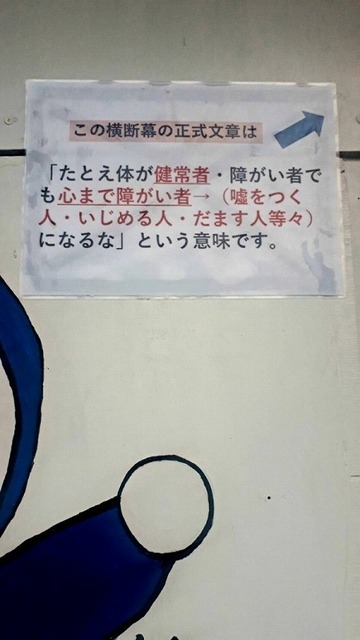 この横断幕の正式文章は
「たとえ体が健常者・障がい者で
も心まで障がい者→（嘘をつく
人・いじめる人・だます人等々）
になるな」という意味です。